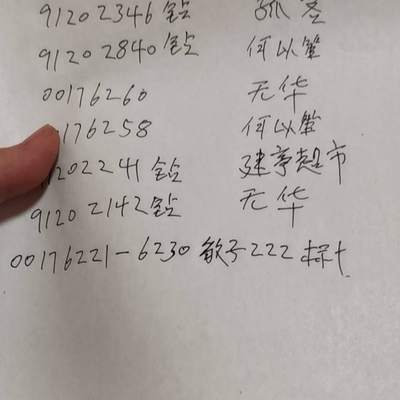 91202346钻 孤圣
91202840钻 何以笙
00176260 无华
176258 何以笙
1202241钻 建亭超市
91202142钻 无华
00176221-6230 敏子222 标卡